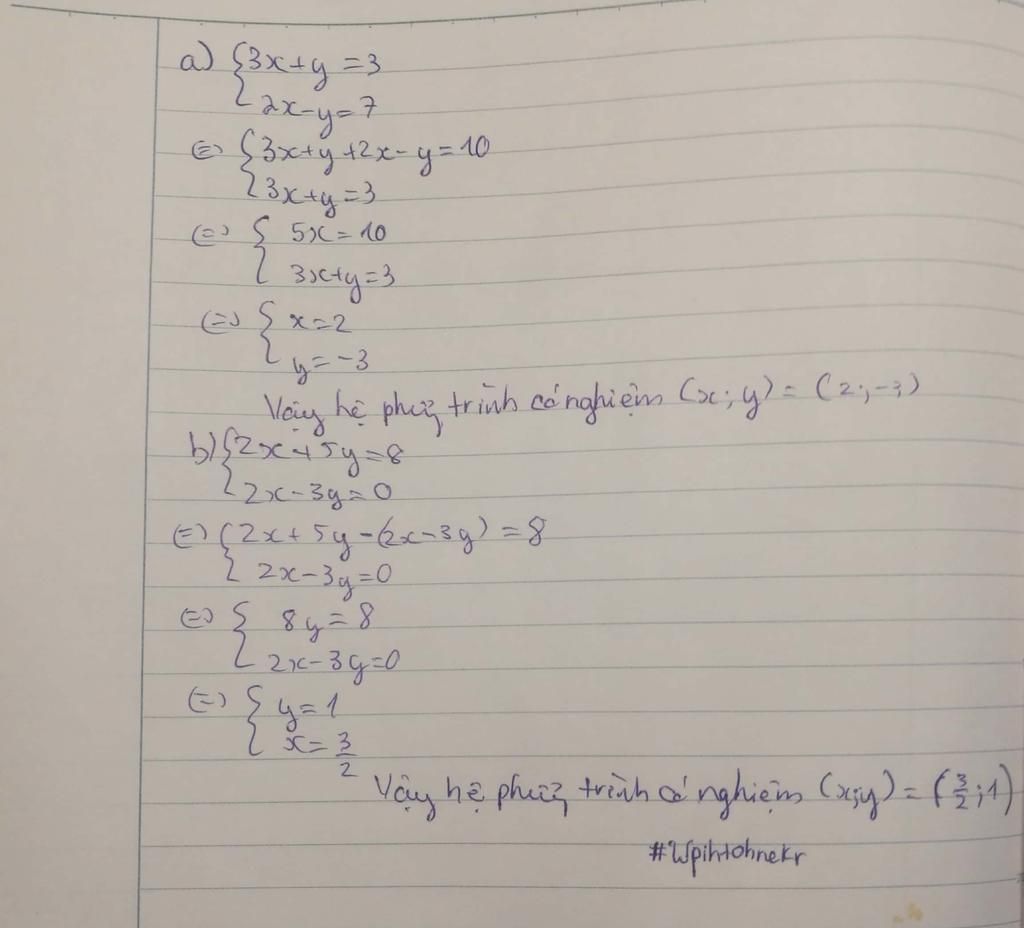 a) {3x+y=3
2x-y=7
⇔ {3x+y+2x-y=10
3x+y=3
⇔ { 5x=10
3x+y=3
⇔ { x=2
y=-3
Vậy hệ phương trình có nghiệm (x;y) = (2;-3)
b) {2x+5y=8
2x-3y=0
⇔ {2x+5y-(2x-3y)=8
2x-3y=0
⇔ { 8y=8
2x-3y=0
⇔ { y=1
x=3/2
Vậy hệ phương trình có nghiệm (x;y) = (3/2;1)
#Wpihtohnekr